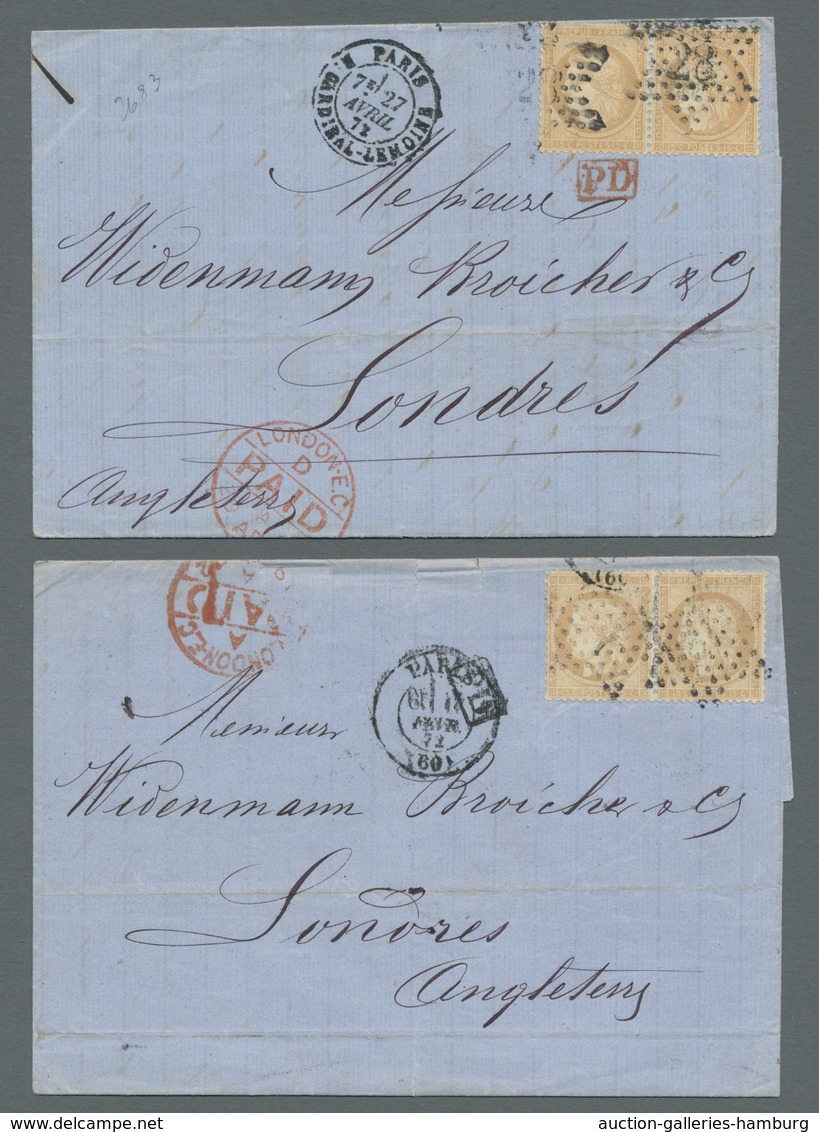 2683
PARIS
7E/ 27
AVRIL
72
R. CARDINAL-LEMOINE
28
REPUB. FRANC.
15 C. POSTES 15 C.
PD
Messieurs
Widenmann Broicher & Co
Londres
Angleterre
LONDON-E.C
D
PAID
LONDON-E.C
A
PAID
(60)
PARIS
AVRIL
72
(60)
Messieurs
Widenmann Broicher & Co
Londres
Angleterre
auction-galleries-hamburg